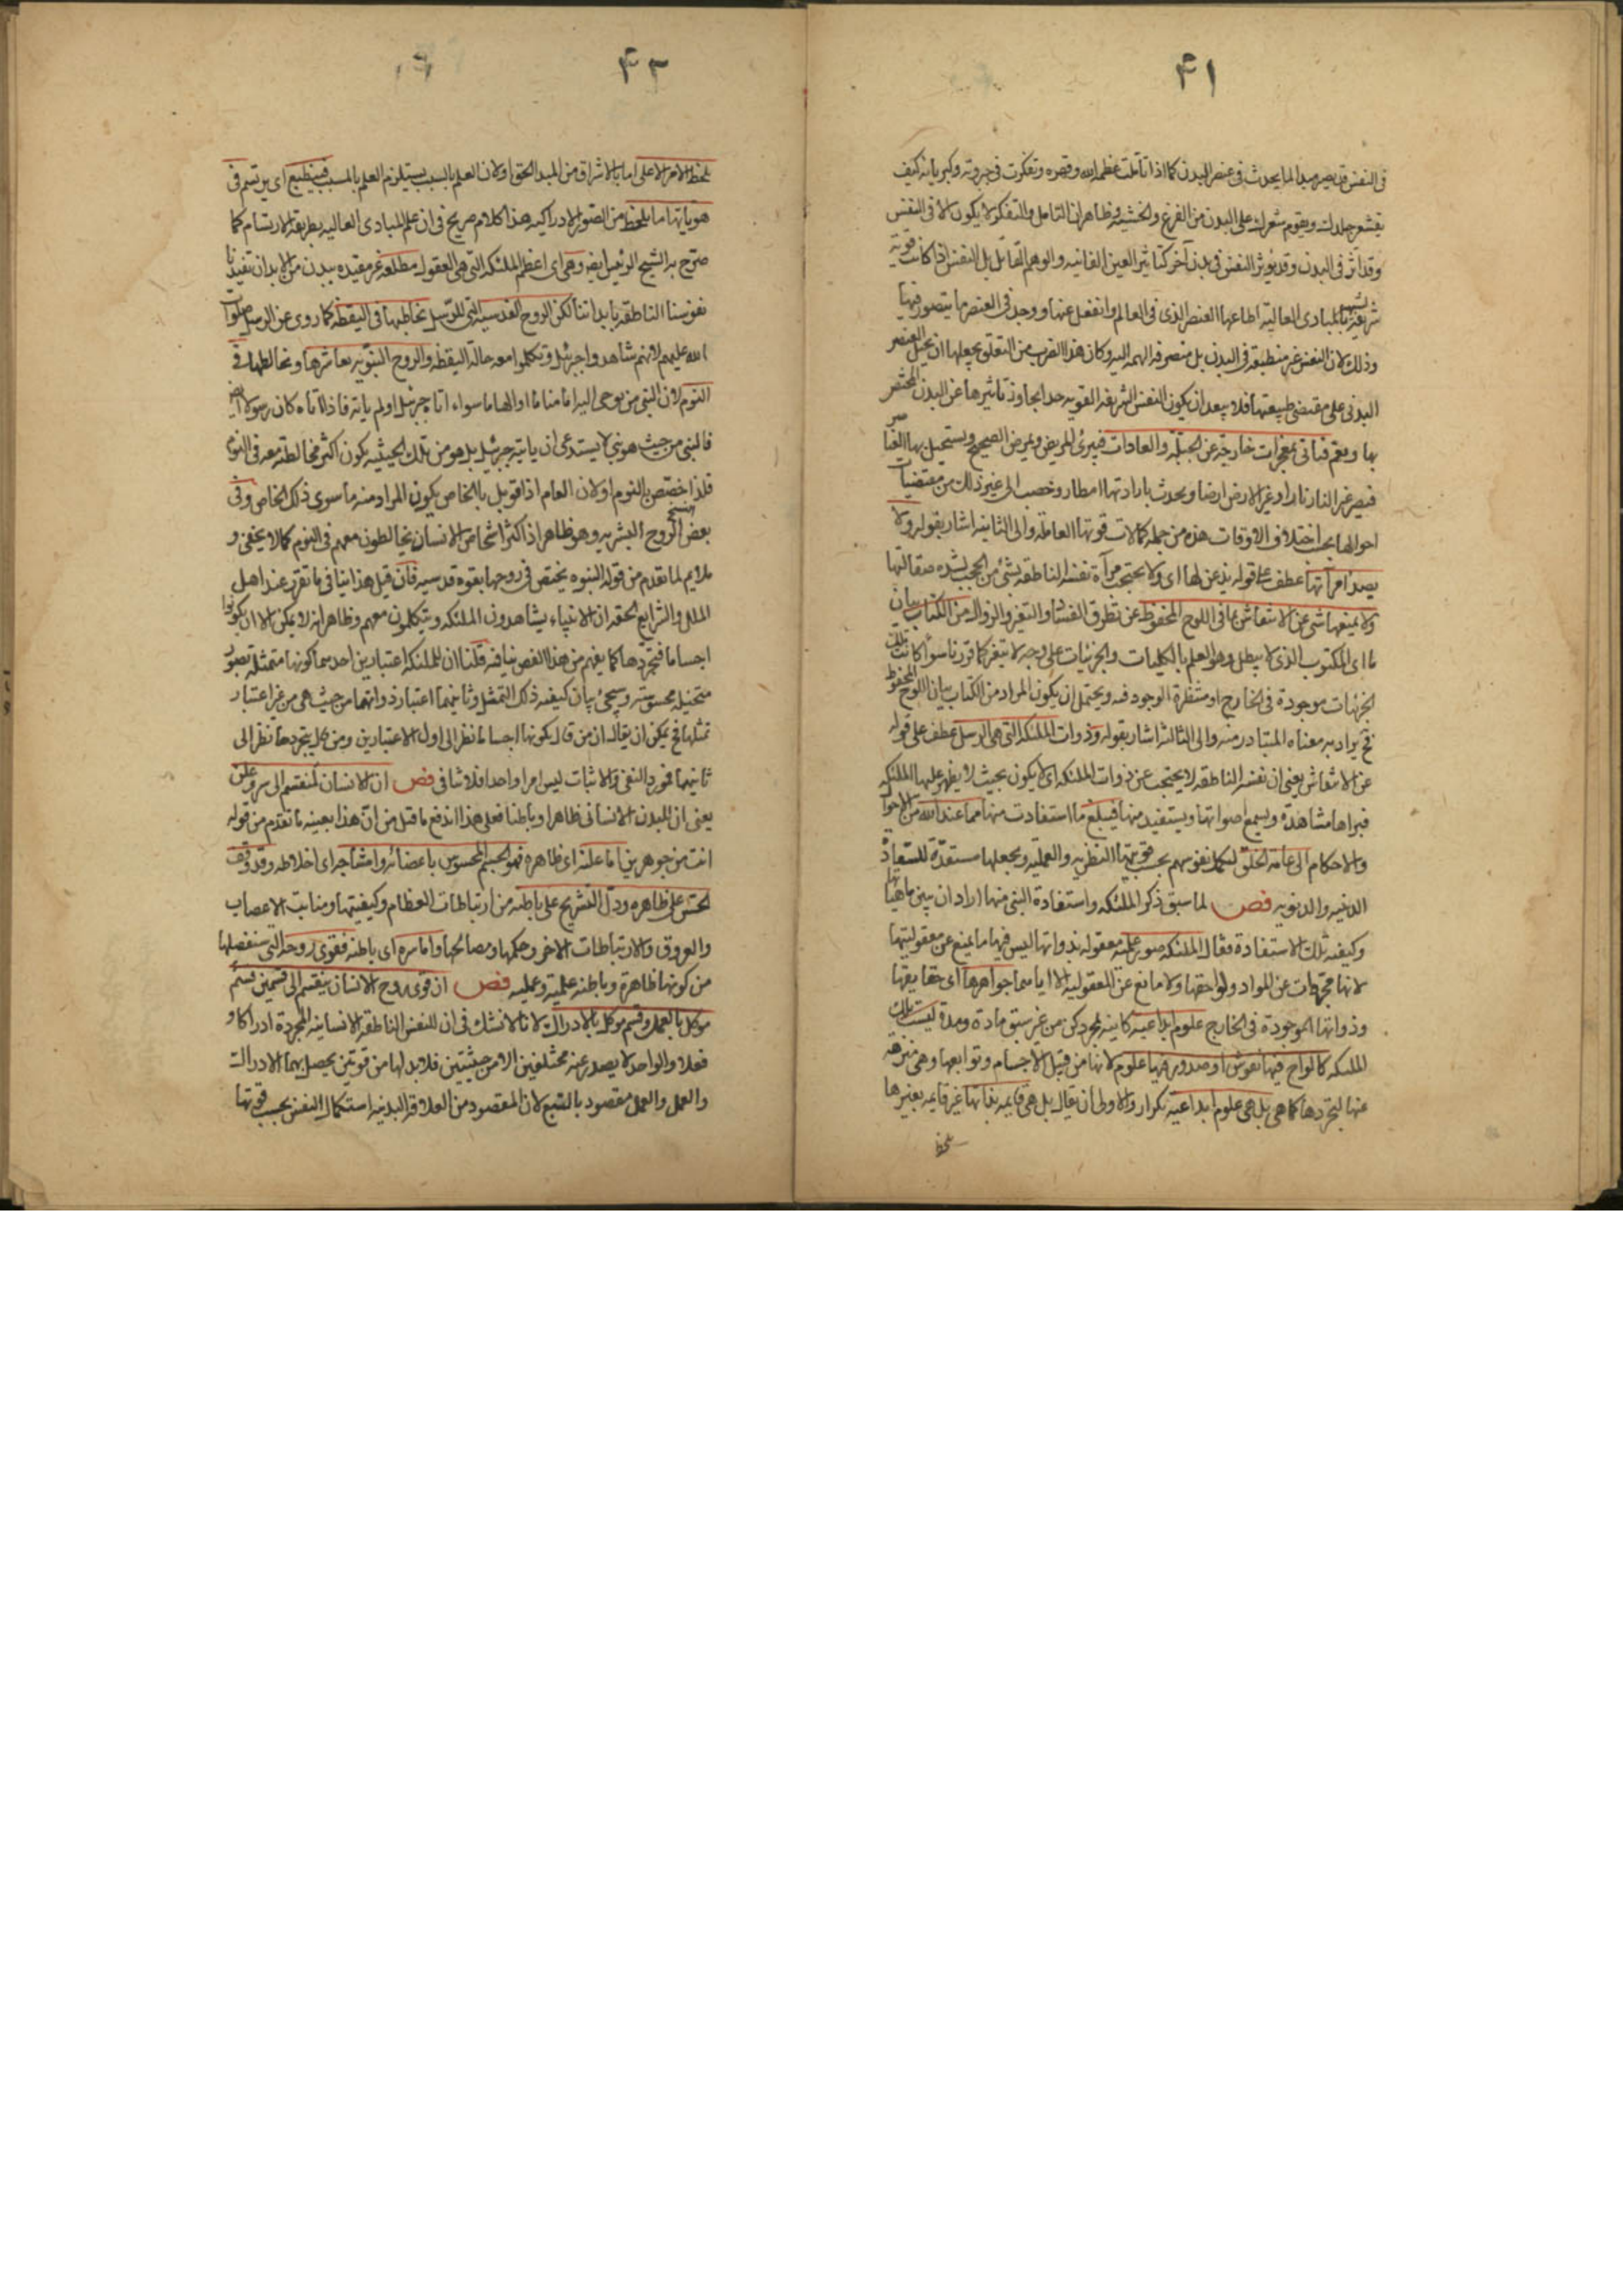 ۴۱
فى النفس قد يصير مبدا لما يحدث فى عنصر البدن كما اذا تاملت عظمة الله وقهره وتفكرت فى جبروته وكبريائه كيف
يقشعر جلدك ويقوم شعرك على البدن من الفزع والخشية وظاهر ان التامل والتفكر لا يكون الا فى النفس
وقد اثر فى البدن وقد يؤثر النفس فى بدن آخر كتاثير العين العاينه والوهم القاتل بل النفس اذا كانت قوية
شريفة شبيه بالمبادى العالية اطاعها العنصر الذى فى العالم وانفعل عنها ووجد فى العنصر ما يتصور فيها
وذلك لان النفس غير منطبعة فى البدن بل منصرفة الهمة اليه وكان هذا الضرب من التعلق يجعلها ان يحيل العنصر
البدنى على مقتضى طبيعتها فلا يبعد ان يكون النفس الشريفة القوية جدا يجاوز تاثيرها عن البدن المختص
بها وبعقم فتاتى بمعجزات خارجة عن الجبلة والعادات فيبرئ المريض ويمرض الصحيح ويستحيل بها العناصر
فيصير غير النار نارا وغير الارض ارضا ويحدث بارادتها امطار وخصب الى غير ذلك من مقتضيات
احوالها بحسب اختلاف الاوقات هذه من جملة كمالات قوتها العاملة والى الثانية اشار بقوله ولا
يصدأ مرآتها عطف على قوله يذعن لها اى ولا يحتجب مرآة نفسه الناطقة بشئ من الحجب لشدة صقالتها
ولا يمنعها شى عن الانتقاش بما فى اللوح المحفوظ عن تطرق الفساد والتغير والزوال من الكتاب بيان
ما اى المكتوب الذى لا يبطل وهو العلم بالكليات والجزئيات على وجه لا يتغير كما قررنا سواء كانت تلك
الجزئيات موجودة فى الخارج او منتظرة الوجود فيه ويحتمل ان يكون المراد من الكتاب بيان اللوح المحفوظ
فح يراد به معناه المتبادر منه والى الثالثة اشار بقوله وذوات الملئكة التى هى الرسل عطف على قوله
عن الانتقاش يعنى ان نفسه الناطقة لا يحتجب عن ذوات الملئكة اى لا يكون بحيث لا يظهر عليها الملئكة
فيراها مشاهدة ويسمع اصواتها ويستفيد منها فيبلغ ما استفادت منها مما عند الله من الاحوال
والاحكام الى عامة الخلق لتكمل نفوسهم بحسب قوتيها النظرية والعملية ويجعلها مستعدة للسعادة
الدينيه والدنيويه فص لما سبق ذكر الملئكة واستفادة النبى منها اراد ان يبين ماهياتها
وكيفية تلك الاستفادة فقال الملئكة صور علمية معقولة بذواتها ليس فيها ما يمنع عن معقوليتها
لانها مجردات عن المواد ولواحقها ولا مانع عن المعقولية الا اياهما جواهرها اى حقايقها
وذواتها الموجودة فى الخارج علوم ابداعية كاينة بمجرد كن من غير سبق مادة ومدة ليست تلك
الملئكة كالواح فيها نقوش او صدور فيها علوم لانها من قبيل الاجسام وتوابعها وهى منزهة
عنها لتجردها كما هى بل هى علوم ابداعية تكرار والاولى ان يقال بل هى قايمة بذاتها غير قايمة بغيرها
تلحظ
۴۲
تلحظ الامر الاعلى اما بالاشراق من المبدا الحق او لان العلم بالسبب يستلزم العلم بالمسبب فينطبع اى يرتسم فى
هوياتها ما تلحظ من الصور الادراكية هذا كلام صريح فى ان علم المبادى العالية بطريقة الارتسام كما
صرح به الشيخ الرئيس ايضا وهى اى اعظم الملئكة التى هى العقول مطلقة غير مقيده ببدن من الابدان تقيد
نفوسنا الناطقة بابداننا لكن الروح القدسية التى للرسل تخاطبها فى اليقظة كما روى عن الرسل صلوات
الله عليهم لانهم شاهدوا جبرئيل وتكلموا معه حالة اليقظة والروح النبوية يعاشرها ويخالطها فى
النوم لان النبى من يوحى اليه اما مناما او الهاما سواء اتاه جبرئيل اولم ياته فاذا اتاه كان رسولا ايضا
فالنبى من حيث هو نبى لا يستدعى ان ياتيه جبرئيل بل هو من تلك الحيثية يكون اكثر مخالطته معه فى النوم
فلذا خصص بالنوم او لان العام اذا قوبل بالخاص يكون المراد منه ما سوى ذلك الخاص وفى
بعض النسخ الروح البشرية وهو ظاهر اذ اكثر اشخاص الانسان يخالطون معهم فى النوم كما لا يخفى و
ملايم لما تقدم من قوله النبوه يختص فى روحها بقوة قدسيه فان قيل هذا ينافى ما تقرر عند اهل
الملل والشرايع الحقة ان الانبياء يشاهدون الملئكة ويتكلمون معهم وظاهر انه لا يمكن الا ان يكونوا
اجساما فتجردها كما يفهم من هذا الفص ينافيه قلنا ان للملئكة اعتبارين احدهما كونها متمثلة بصور
متخيلة محسوسة وسيجئ بيان كيفية ذلك التمثل وثانيهما اعتبار ذواتها من حيث هى من غير اعتبار
تمثلها فح يمكن ان يقال ان من قال بكونها اجساما نظر الى اول الاعتبارين ومن قال بتجردها نظر الى
ثانيهما فمورد النفى والاثبات ليس امرا واحدا فلا تنافى فص ان الانسان لمنقسم الى سر وعلن
يعنى ان للبدن الانسانى ظاهرا وباطنا فعلى هذا اندفع ما قيل من ان هذا بعينه ما تقدم من قوله
انت من جوهرين اما علنه اى ظاهره فهو الجسم المحسوس باعضائه وامشاجه اى اخلاطه وقد وقف
الحس على ظاهره ودل التشريح على باطنه من ارتباطات العظام وكيفيتها ومنابت الاعصاب
والعروق والارتباطات الاخر وحكمها ومصالحها واما سره اى باطنه فقوى روحه التى سنفصلها
من كونها ظاهرة وباطنه علمية وعملية فص ان قوى روح الانسان ينقسم الى قسمين قسم
موكل بالعمل وقسم موكل بالادراك لانا لا نشك فى ان للنفس الناطقة الانسانية المجردة ادراكا و
فعلا والواحد لا يصدر عنه مختلفين الا من حيثيتين فلا بد لها من قوتين يحصل بهما الادراك
والعمل والعمل مقصود بالتبع لان المقصود من العلاقة البدنيه استكمال النفس بحسب قوتها